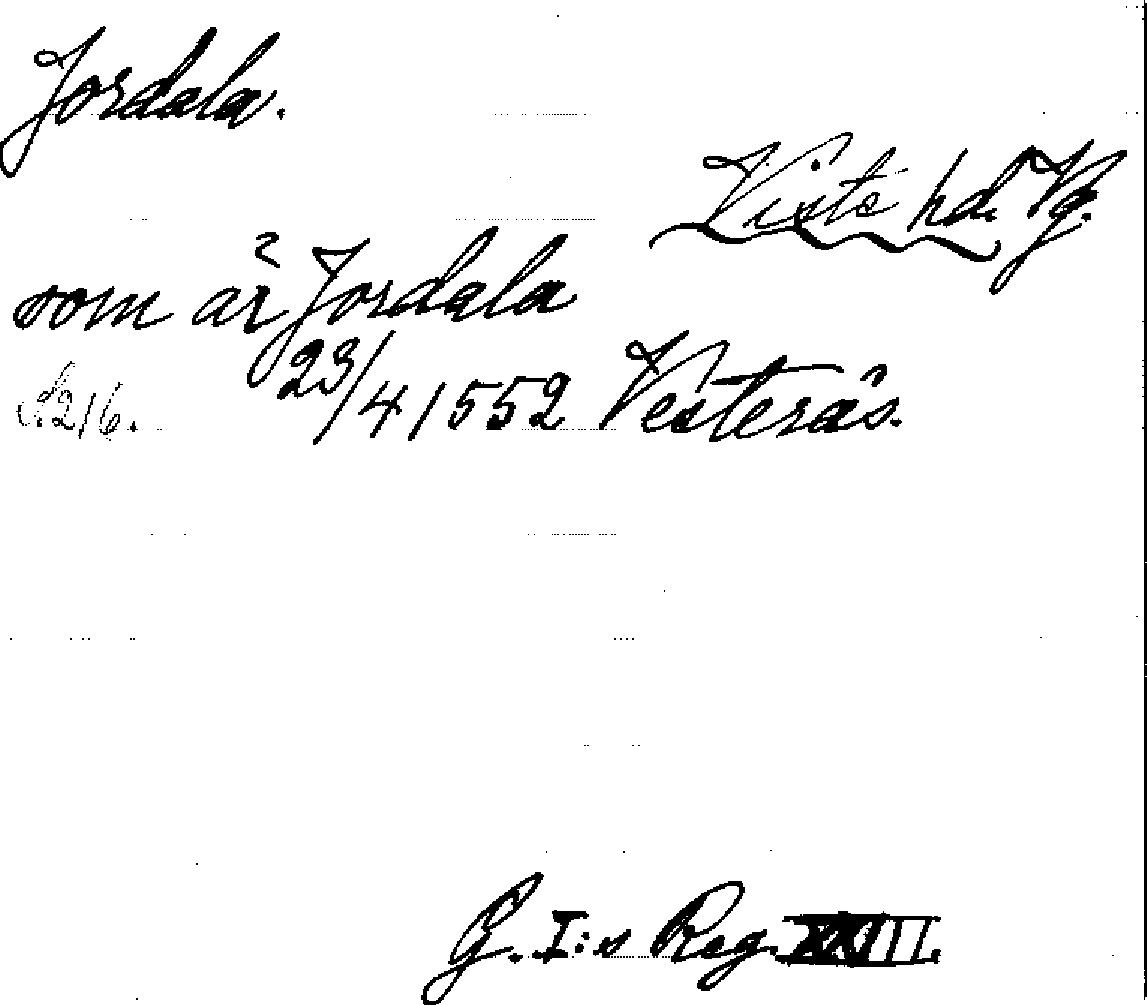 Jordala.
Vista hd. Vg.
som är Jordala
S. 216. 23/4 1552 Vesterås.
G. I:s Reg. XXIII.